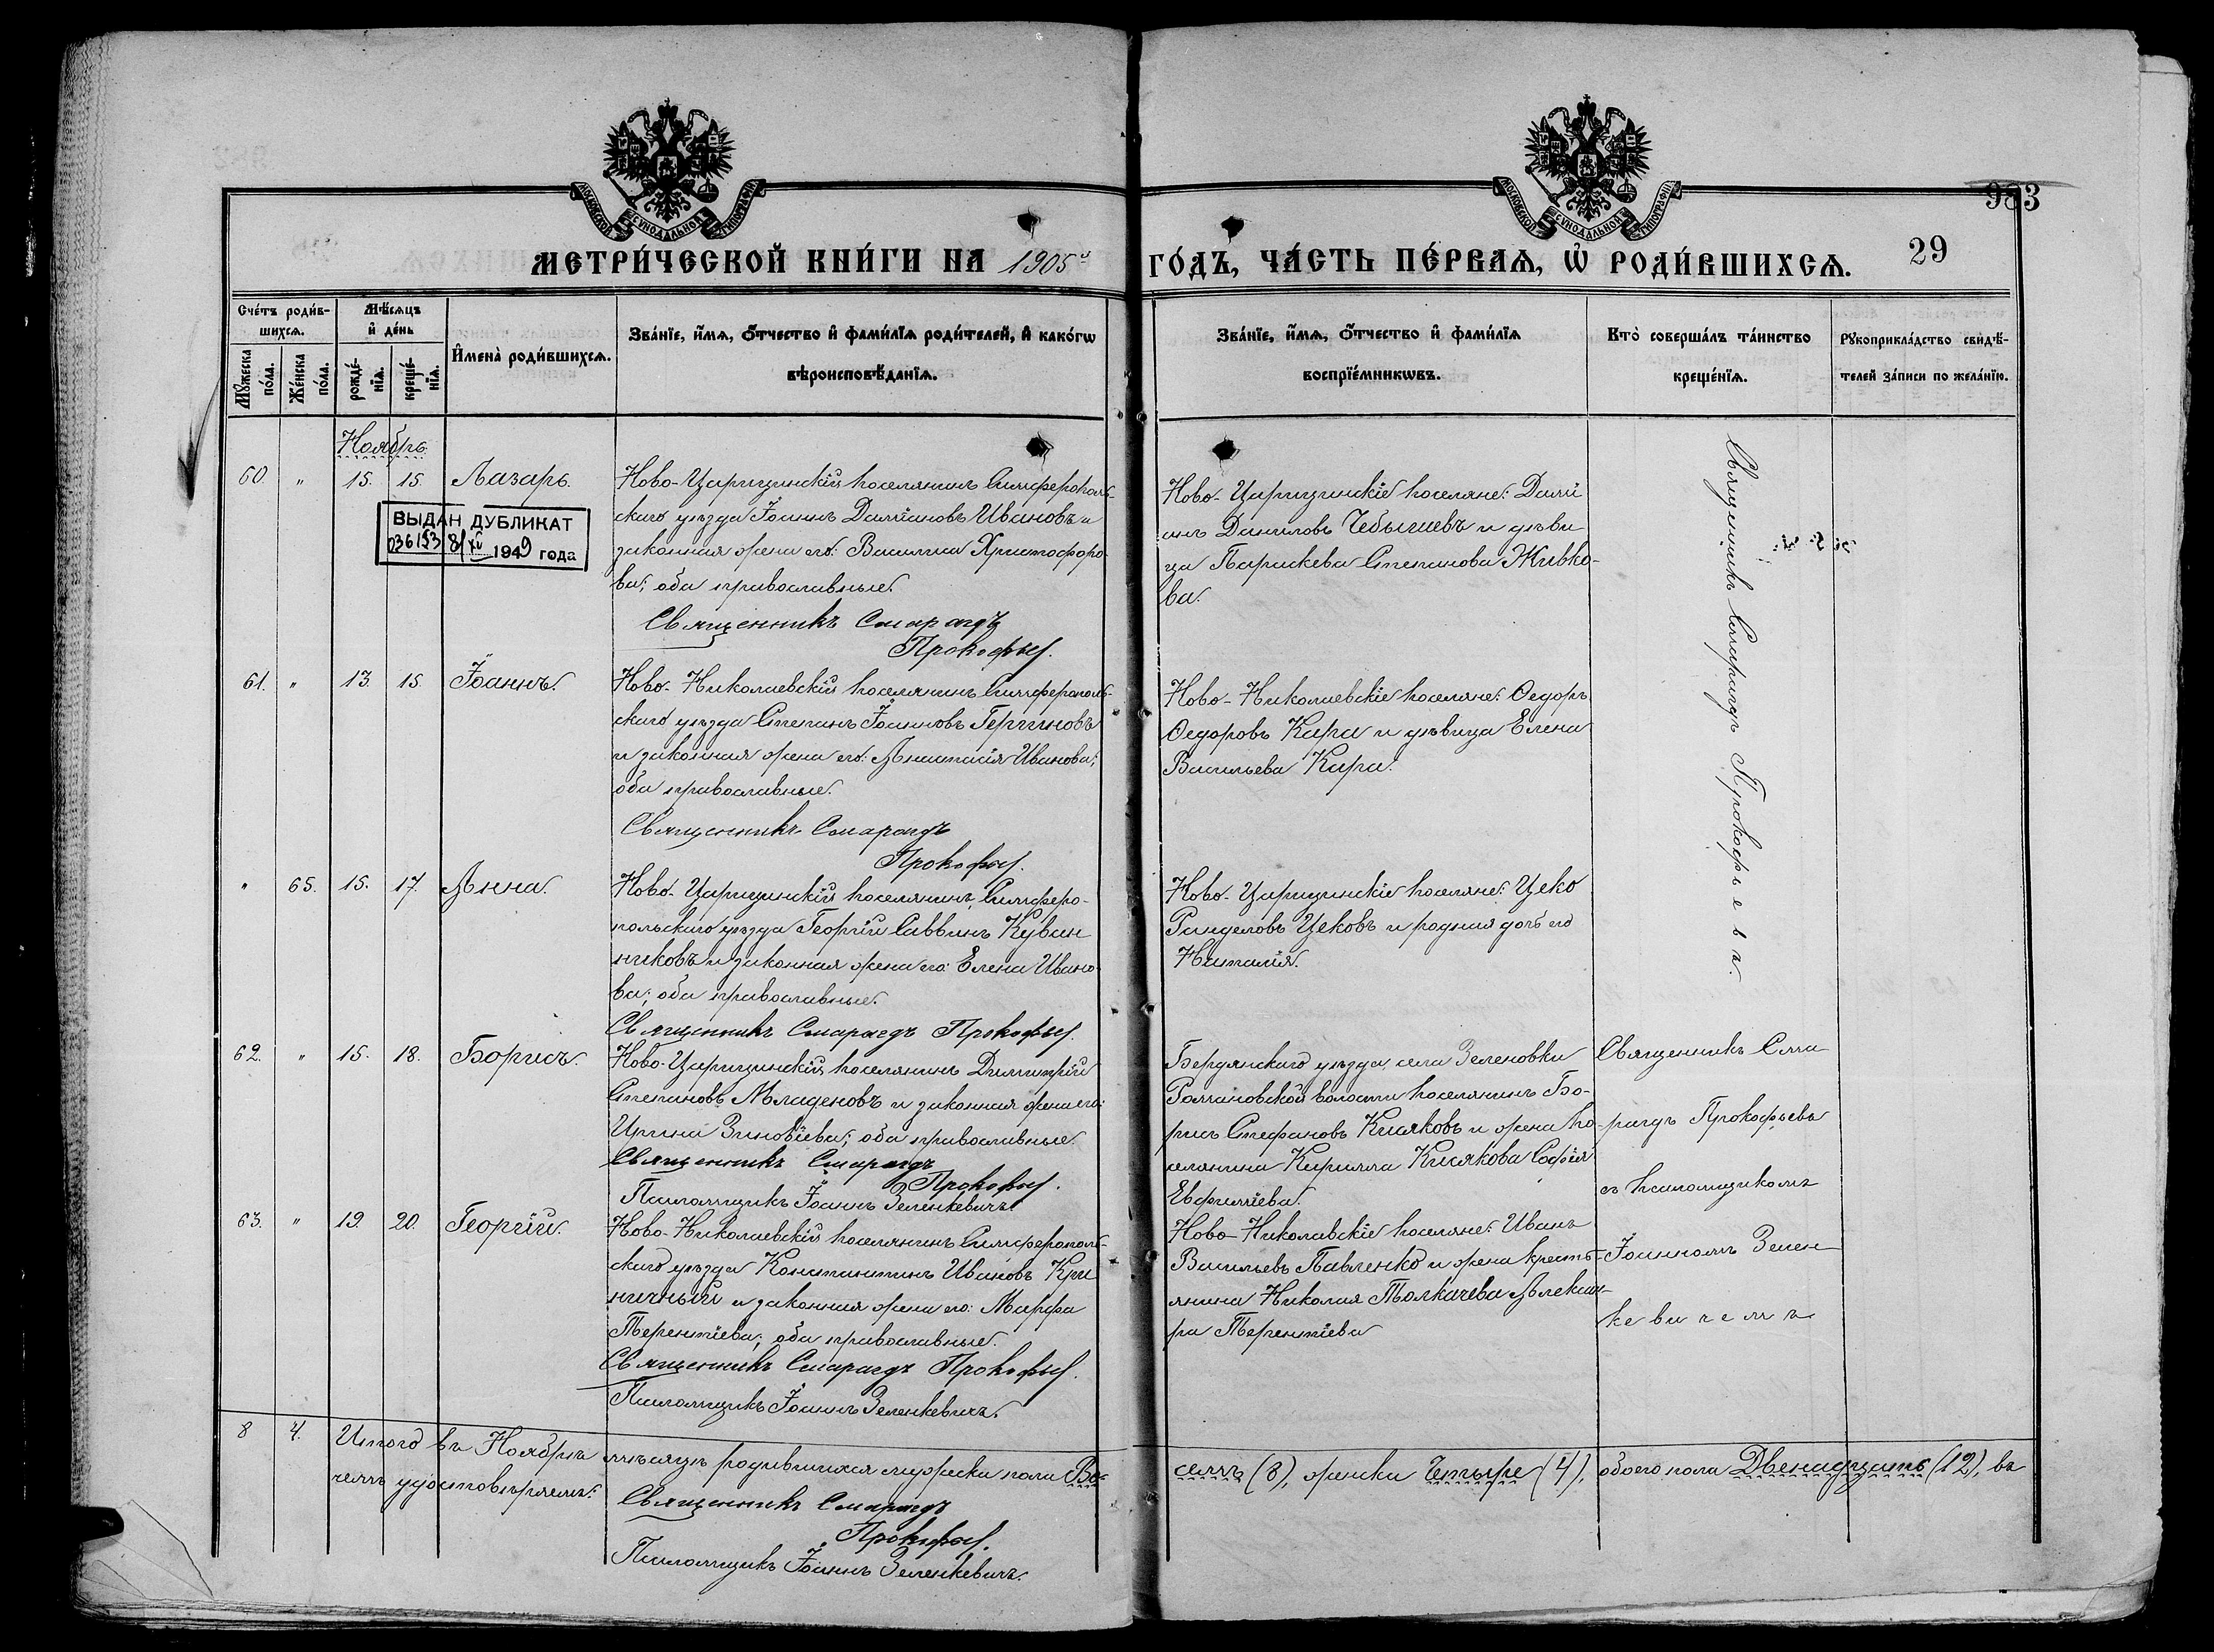 983
МОСКОВСКОЙ СѴНОДАЛЬНОЙ ТИПОГРАФІИ
МОСКОВСКОЙ СѴНОДАЛЬНОЙ ТИПОГРАФІИ
МЕТРИ́ЧЕСКОЙ КНИ́ГИ НА 1905й
ГО́ДЪ, ЧА́СТЬ ПЕ́РВАѦ, Ѡ҆ РОДИ́ВШИХСѦ. 29
Сче́тъ роди́в-
шихсѧ.
Мѣ́сѧцъ
и҆ де́нь
Мꙋ́жеска
по́ла.
Же́нска
по́ла.
рожде́-
нїѧ.
креще́-
нїѧ.
И҆мена̀ роди́вшихсѧ.
Зва́нїе, и҆́мѧ, ѻ҆́тчество и҆ фами́лїѧ роди́телей, и҆ како́гѡ
вѣроисповѣ́данїѧ.
Зва́нїе, и҆́мѧ, ѻ҆́тчество и҆ фами́лїѧ
воспрїе́мникѡвъ.
Кто̀ соверша́лъ та́инство
креще́нїѧ.
Рꙋкоприкла́дство свидѣ́-
телей за́писи по жела́нїю.
Ноябрь.
60. " 15. 15. Лазарь.
Ново-Царицинскій поселянинъ Симферополь-
скаго уѣзда Іоаннъ Даміановъ Ивановъ и
законная жена его: Василиса Христофоро-
ва; оба православные.
Священникъ Смарагдъ
Прокофьев.
ВЫДАН ДУБЛИКАТ
036153 8/XII 1949 года
Ново-Царицинскіе поселяне: Дамі
анъ Даниловъ Чебышевъ и дѣви
ца Параскева Степанова Живко-
ва.
Священникъ Смарагдъ Прокофьевъ.
61. " 13. 15. Іоаннъ.
Ново-Николаевскій поселянинъ Симферополь-
скаго уѣзда Степанъ Іоанновъ Гергиновъ
и законная жена его: Анастасія Иванова;
оба православные.
Священникъ Смарагдъ
Прокофьев.
Ново-Николаевскіе поселяне: Ѳедоръ
Ѳедоровъ Кара и дѣвица Елена
Васильева Кара.
" 65. 15. 17. Анна.
Ново-Царицинскій поселянинъ, Симферо-
польскаго уѣзда Георгій Саввинъ Куван
никовъ и законная жена его: Елена Ивано-
ва; оба православные.
Священникъ Смарагдъ Прокофьев.
Ново-Царицинскіе поселяне: Цеко
Ранделовъ Цековъ и родная дочь его
Наталія.
62. " 15. 18. Борисъ.
Ново-Царицинскій поселянинъ Димитрій
Степановъ Младеновъ и законная жена его:
Ирина Зиновіева; оба православные.
Священникъ Смарагдъ
Прокофьев.
Псаломщикъ Іоаннъ Зеленкевичъ.
Бердянскаго уѣзда, села Зеленовки
Романовской волости поселянинъ Бо-
рисъ Стефановъ Кисяковъ и жена по-
селянина Кирилла Кисякова Софія
Евфиміева.
Священникъ Сма
рагдъ Прокофьевъ
съ псаломщикомъ
Іоанномъ Зелен
кевичемъ
63. " 19. 20. Георгій.
Ново-Николаевскій поселянинъ Симферополь-
скаго уѣзда Константинъ Ивановъ Кри
ничный и законная жена его: Марфа
Терентіева; оба православные.
Священникъ Смарагдъ Прокофьев.
Псаломщикъ Іоаннъ Зеленкевичъ.
Ново-Николавскіе поселяне: Иванъ
Васильевъ Павленко и жена кресть-
янина Николая Толкачева Алексан-
ра Терентіева
8 4. Итого въ Ноябрѣ мѣсяцѣ родившихся мужеска пола Во-
семь (8), женска Четыре (4), обоего пола Двенадцать (12), въ
чемъ удостовѣряемъ:
Священникъ Смарагдъ
Прокофьев.
Псаломщикъ Іоаннъ Зеленкевичъ.